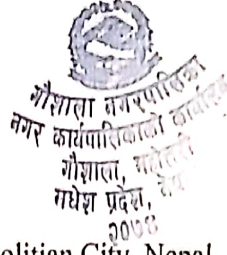 गौशाला नगरपालिका
नगर कार्यपालिकाको कार्यालय
गौशाला, महोत्तरी
मधेश प्रदेश,
२०७४
City, Nepal